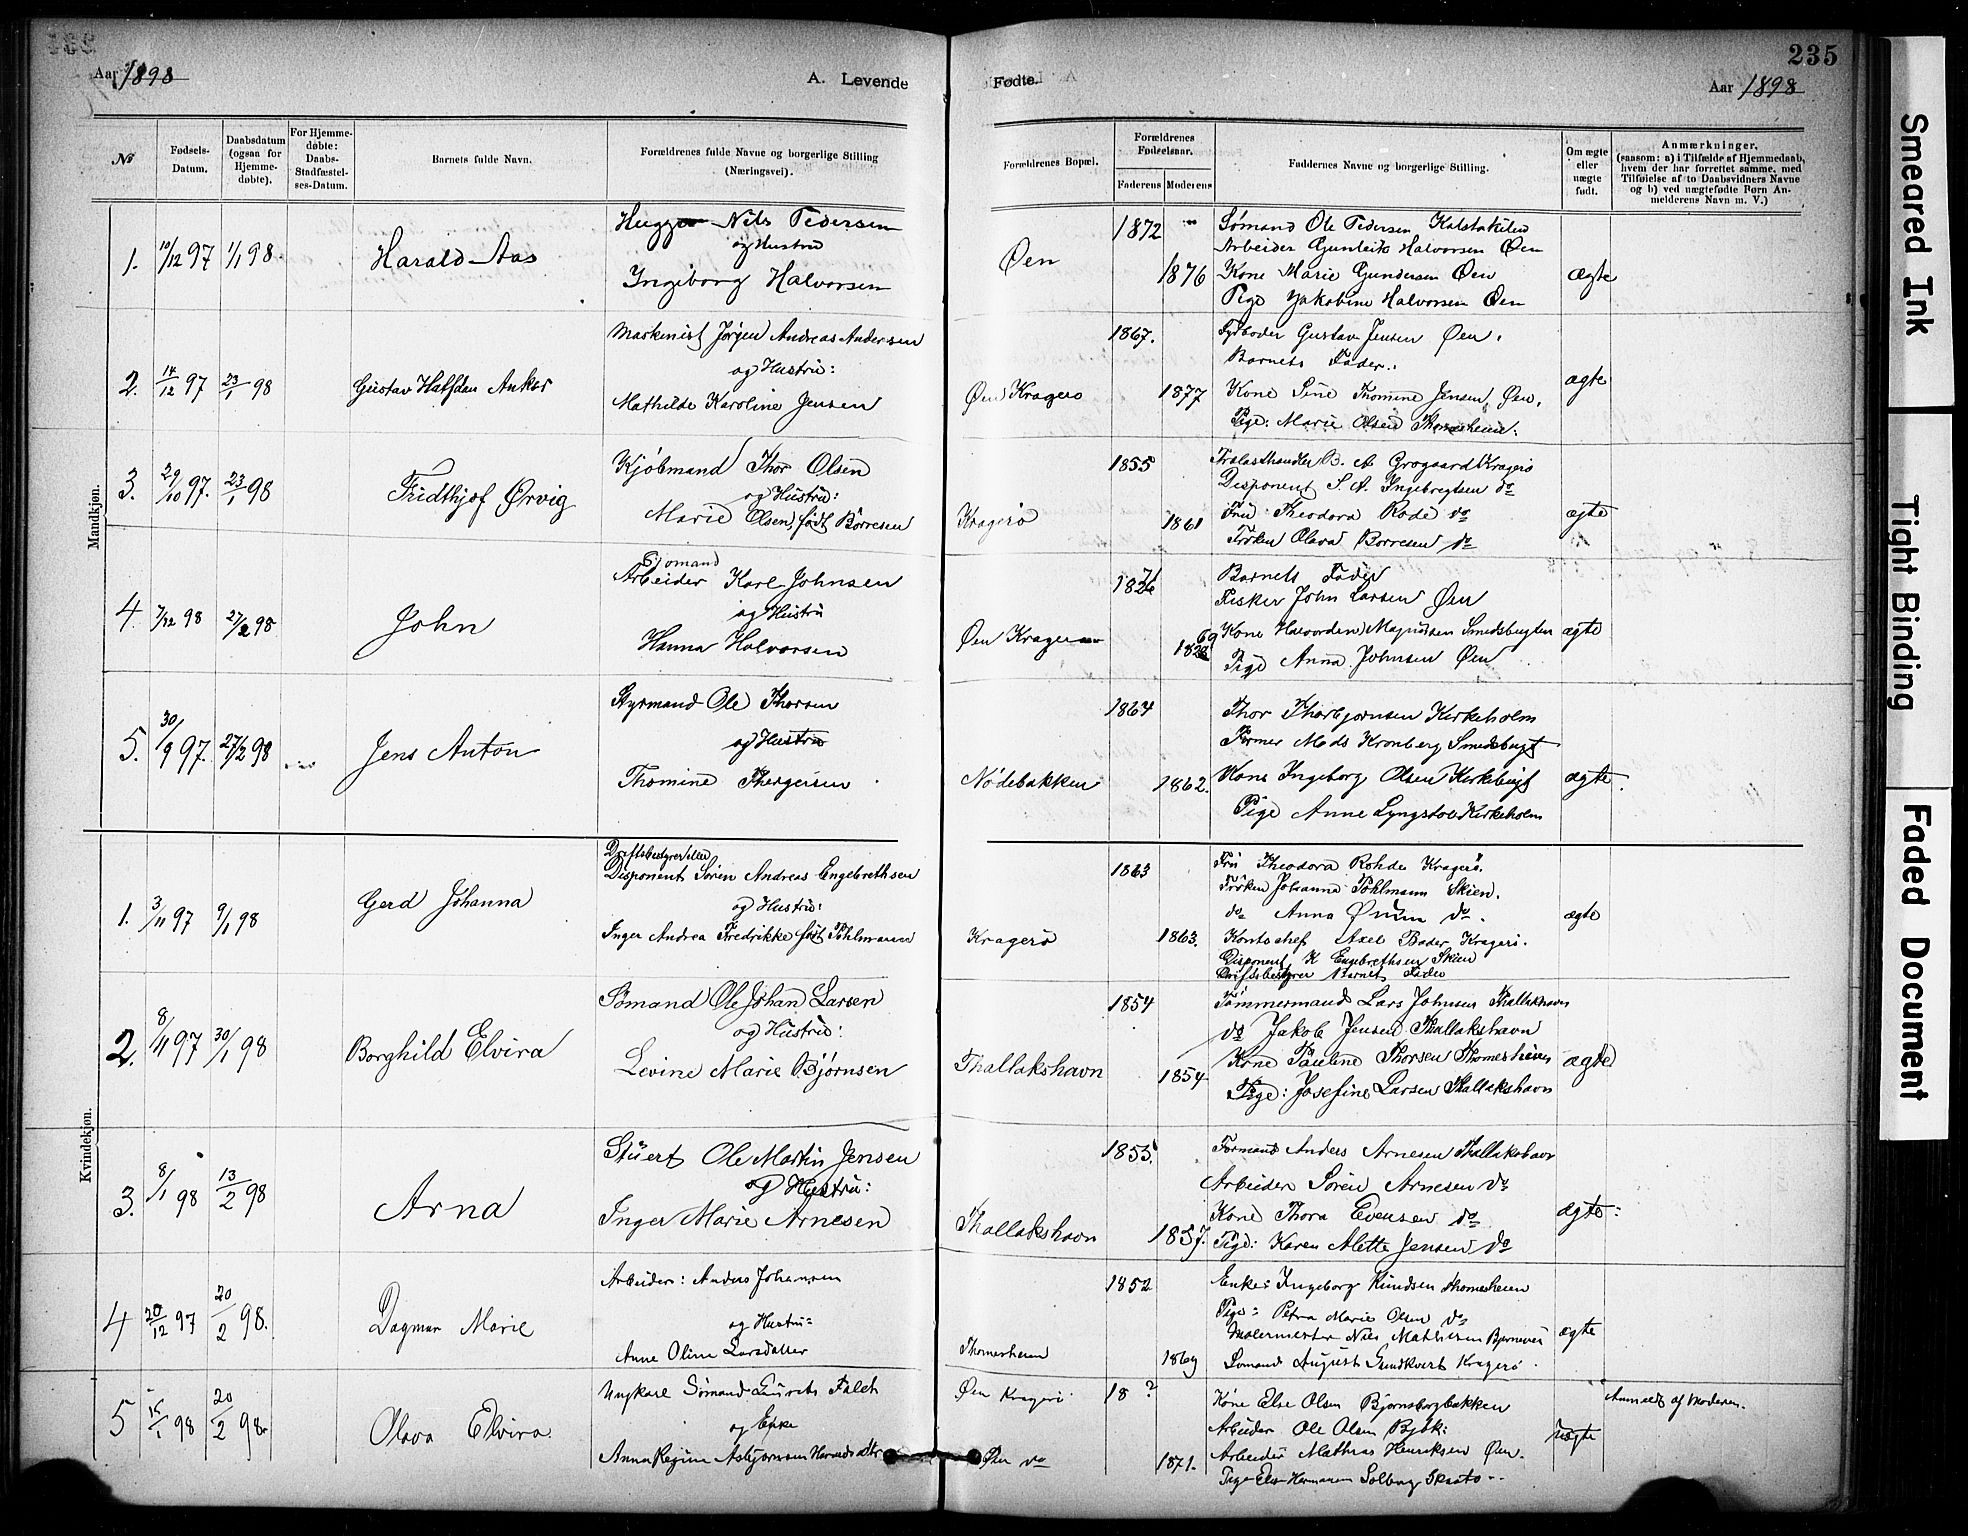 235
Aar 1898
A. Levende
Fødte.
Aar 1898
No
Fødsels-Datum.
Daabsdatum (ogsaa for Hjemme-døbte).
For Hjemme-døbte: Daabs-Stadfæstel-ses-Datum.
Barnets fulde Navn.
Forældrenes fulde Navne og borgerlige Stilling (Næringsvei).
Forældrenes Bopæl.
Forældrenes Fødselsaar.
Faderens
Moderens
Faddernes Navne og borgerlige Stilling.
Om ægte eller uægte født.
Anmærkninger.
(saasom: a) i Tilfælde af Hjemmedaab, hvem der har forrettet samme, med Tilføielse af to Daabsvidners Navne og b) ved uægtefødte Børn An-melderens Navn m. V.)
Mandkjøn.
1. 10/12 97 1/1 98. Harald Aas
Nils Pedersen
og Hustru
Ingeborg Halvorsen
Øen
1872
1876
Sømand Ole Pedersen
Arbeider Gunleik Halvorsen Øen
Kone Marie Gundersen Øen
Pige Jakobine Halvorsen Øen
ægte
2. 14/12 97 23/1 98 Gustav Halfdan Anker
Maskinist Jørgen Andreas Andersen
og Hustru:
Mathilde Karoline Jensen
Øen Kragerø
1867.
1877
Fyrbøder Gustav Jensen Øen.
Barnets Fader.
Kone Sine Thomine Jensen, Øen.
Pige: Marie Olsen Thomesheien:
ægte
3. 29/10 97. 23/1 98 Fridthjof Ørvig
Kjøbmand Thor Olsen
og Hustru:
Marie Olsen, født Børresen
Kragerø
1855
1861
Trælasthandler B. A. Grogaard Kragerø
Disponent S. A. Ingebregtsen do
Fru Theodora Rode do
Frøken Olava Børresen do
ægte
4 7/12 98 27/2 98 John
Sjømand
Arbeider Karl Johnsen
og Hustru
Hanna Halvorsen
Øen
Barnets Fader
Fisker John Larsen Øen
Kone Magnussen Smedsbugten
Pige Anna Johnsen Øen
ægte
5. 30/9 97. 27/2 98 Jens Anton
Styrmand Ole Thorsen
og Hustru
Thomine
Nødebakken
1864
1862.
Thor Thorbjørnsen Kirkeholm
Mads Kronberg Smedsbugt
Kone Ingeborg Olsen Kirkebugt
Pige Anne Kirkeholm
ægte.
Kvindekjøn.
1. 3/11 97 9/1 98 Gerd Johanna
Driftsbestyrer eller
Disponent Søren Andreas Engebrethsen
og Hustru:
Inger Andrea Fredrikke født Pohlmann
Kragerø
1863
1863.
Fru Theodora Rohde Kragerø.
Frøken Johanna Pohlmann Skien.
do Anna do.
Kontochef Axel Kragerø.
Disponent K Engebrethsen Skien
Driftsbestyrer Barnets Fader
ægte
2. 8/11 97 30/1 98 Borghild Elvira
Sømand Ole Johan Larsen
og Hustru:
Levine Marie Bjørnsen
Thallakshavn
1854
1854
Tømmermand Lars Johnsen Thallakshavn
do Jakob Jensen Thallakshavn
Kone Pauline Thorsen Thomesheien
Pige: Josefine Larsen Thallakshavn
ægte
3. 8/1 98 13/2 98 Arna
Stuert Ole Martin Jensen
og Hustru:
Inger Marie Arnesen
Thallakshavn
1855.
1857.
Formand Anders Arnesen Thallakshavn
Arbeider Søren Arnesen do
Kone Thora Evensen do
Pige: Karen Alette Jensen do
ægte:
4 20/12 97 20/2 98. Dagmar Marie
Arbeider: Anders Johannsen
og Hustru:
Anne Oline Larsdatter
Thomesheien
1852
1869
Enke: Ingeborg Knudsen Thomesheien
Pige: Petra Marie Olsen do
Malermester Nils Mathisen
Sømand August Kragerø.
ægte
5 15/1 98 20/2 98. Olava Elvira
Ungkarl Sømand
og Enke
Øen Kragerø
Øen do
18 ?
1871.
Kone Else Olsen Bjørnsborgbakken
Arbeider Ole Olsen
Arbeider Mathias Henriksen Øen.
uægte
Anmeldt af Moderen.
Smeared Ink
Tight Binding
Faded Document